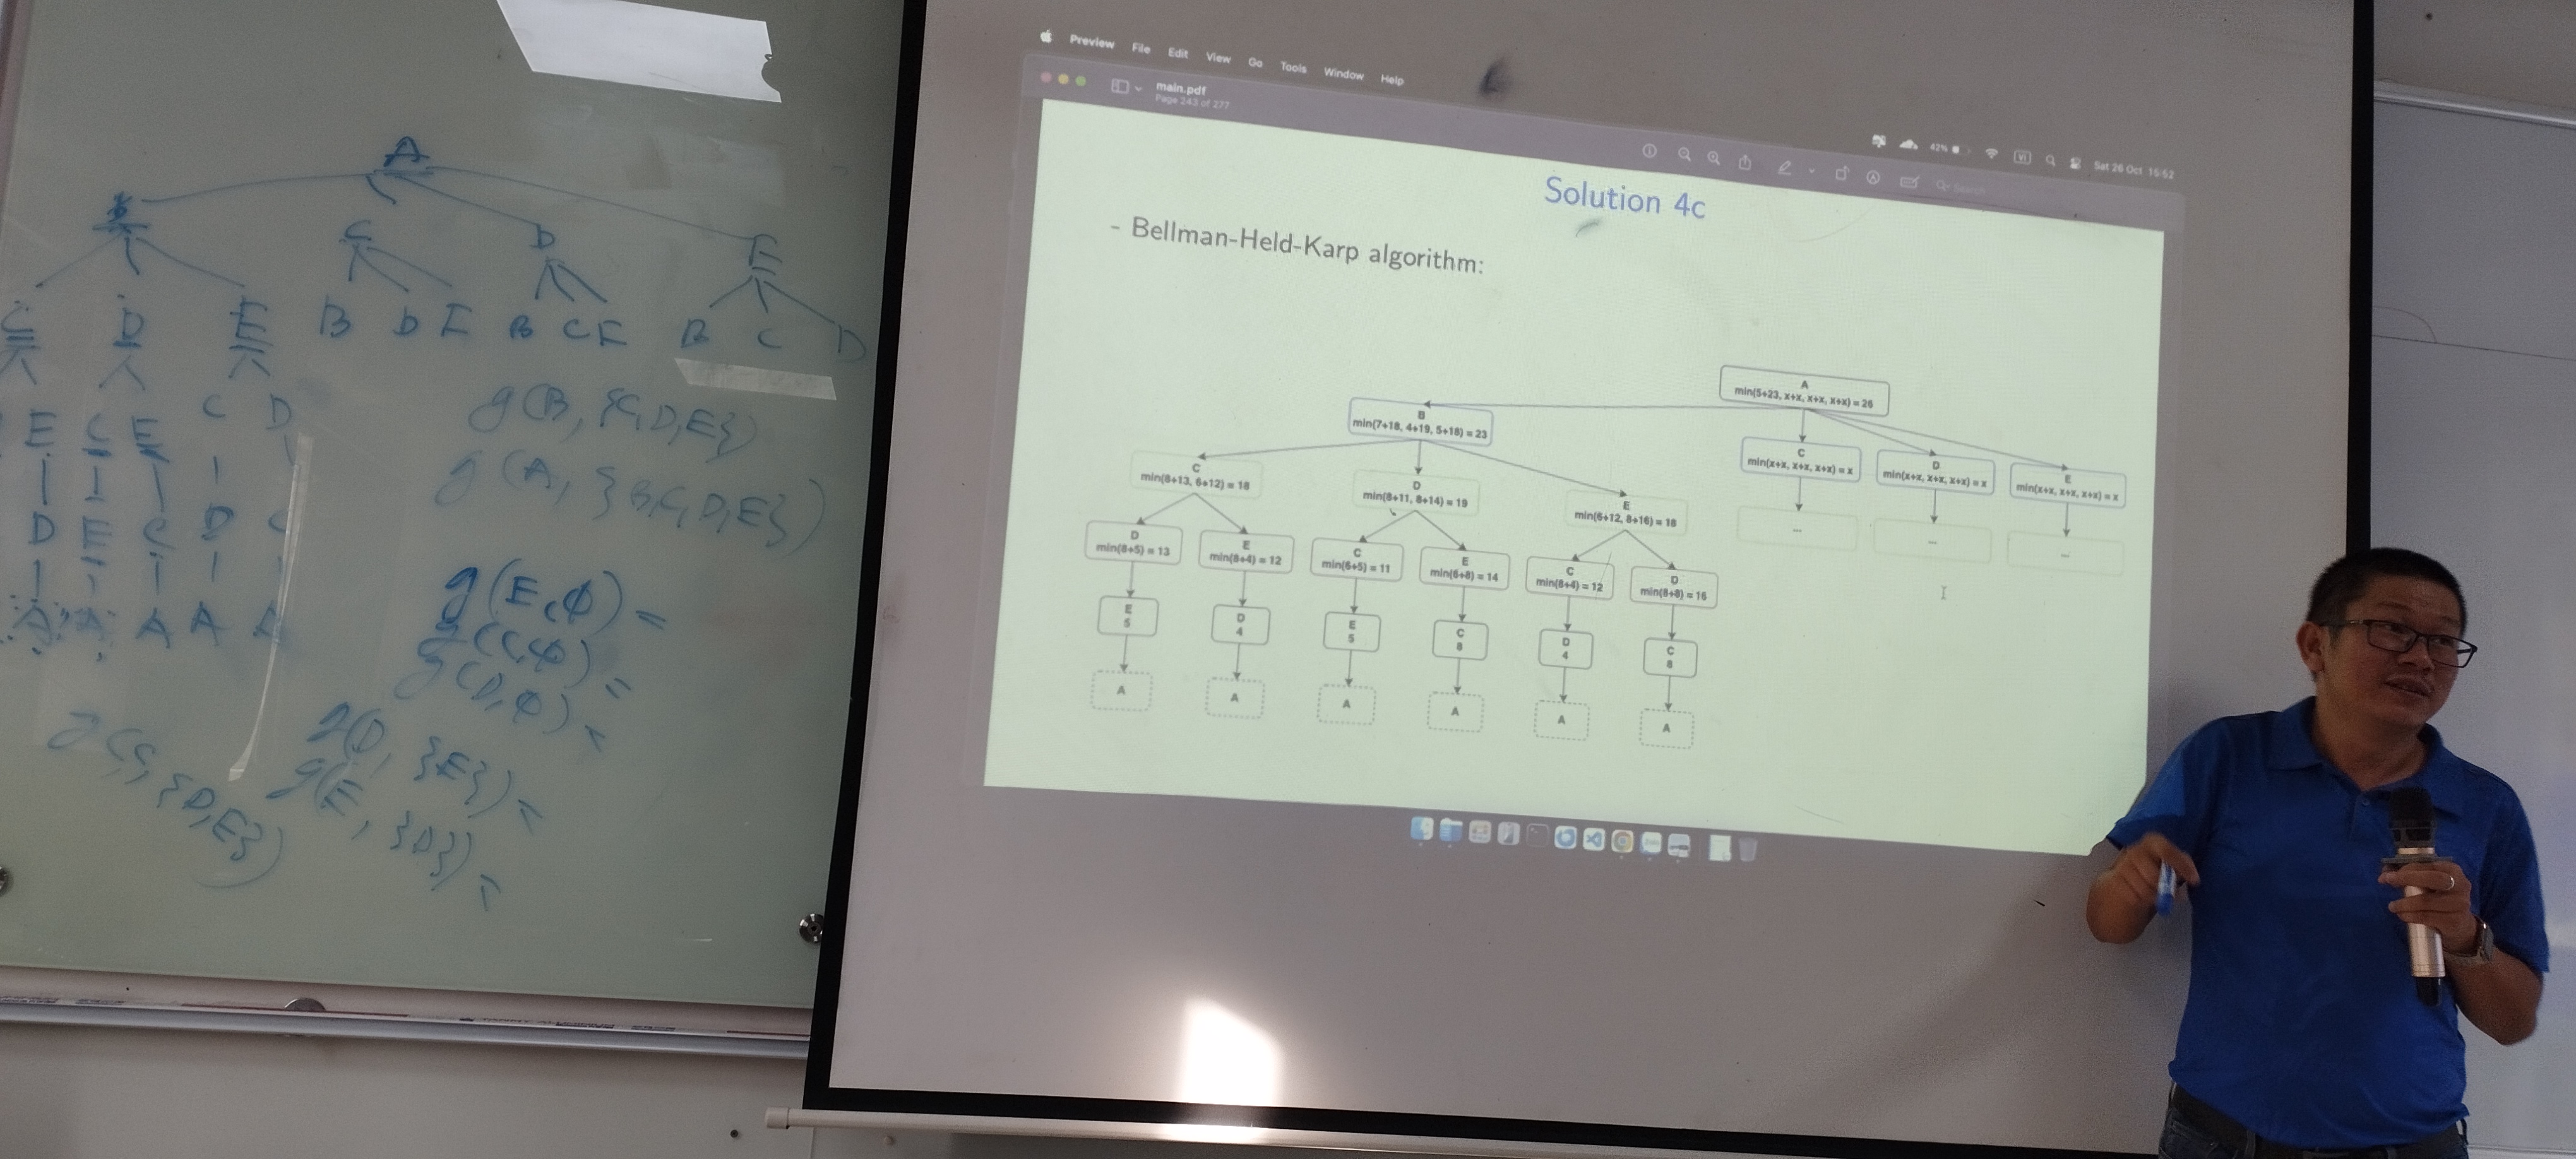 A
B C D E
C D E B D E B C E B C D
E C E C D
D E C D C
A A A A A
g(B, {C,D,E})
g(A, {B,C,D,E})
g(E,φ) =
g(C,φ) =
g(D,φ) =
g(D, {E}) =
g(E, {D}) =
g(C, {D,E})
Preview File Edit View Go Tools Window Help
main.pdf
Page 243 of 277
42%
VI
Sat 26 Oct 15:52
Search
Solution 4c
- Bellman-Held-Karp algorithm:
A
min(5+23, x+x, x+x, x+x) = 26
B
min(7+18, 4+19, 5+18) = 23
C
min(x+x, x+x, x+x) = x
D
min(x+x, x+x, x+x) = x
E
min(x+x, x+x, x+x) = x
C
min(8+13, 6+12) = 18
D
min(8+11, 8+14) = 19
E
min(6+12, 8+16) = 18
...
...
...
D
min(8+5) = 13
E
min(8+4) = 12
C
min(6+5) = 11
E
min(6+8) = 14
C
min(8+4) = 12
D
min(8+8) = 16
E
5
D
4
E
5
C
8
D
4
C
8
A
A
A
A
A
A